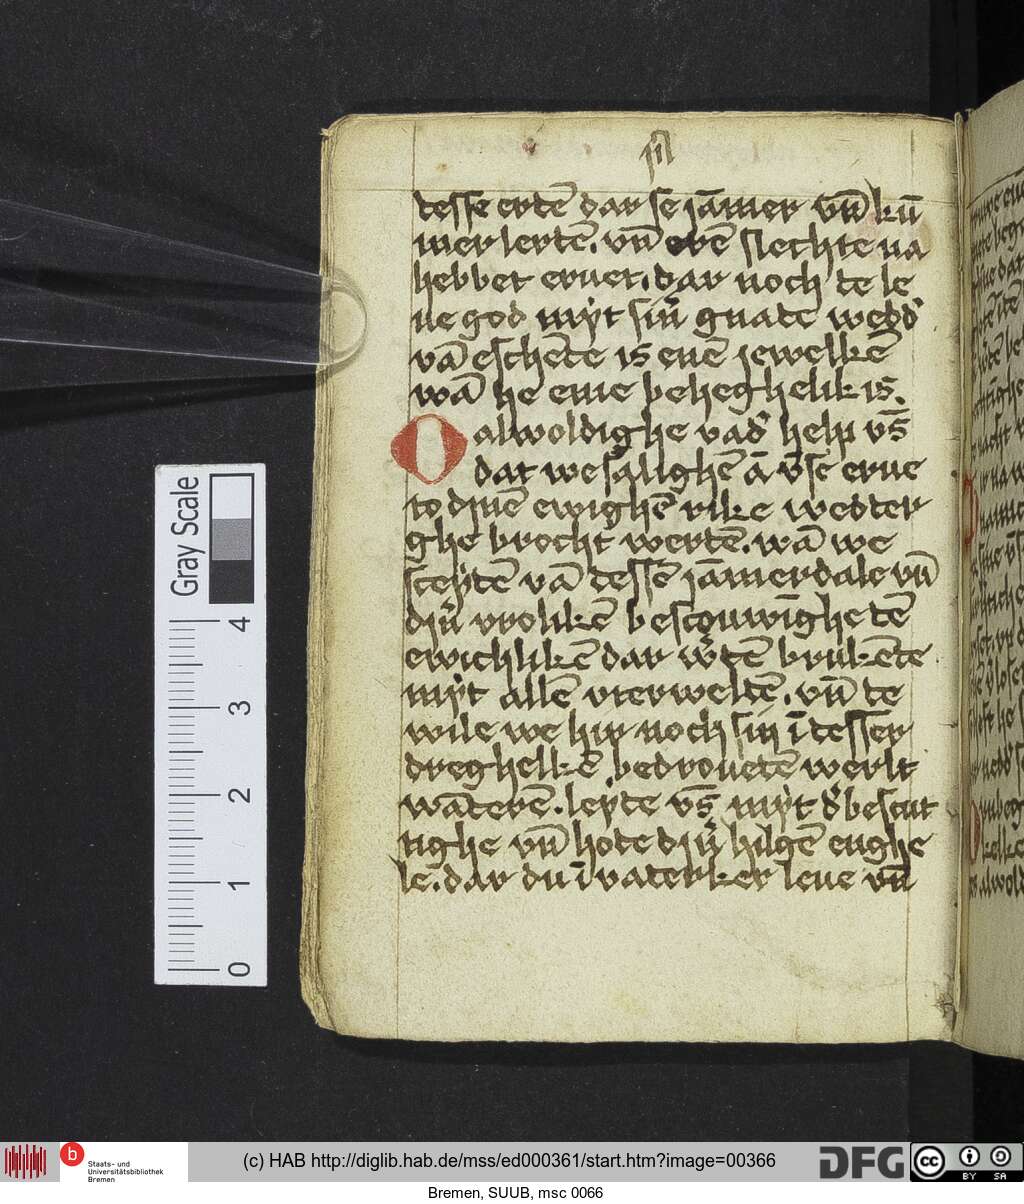 tesse ertē dar se jāmer vn̄ kū
mer lertē. vn̄ erē slechte na
hebbet eruet. dar noch te le
ue god myt sin̄ gnate wedd'
vā eschēte is euē jewelkē
wā he eme beheghelik is.
O alwoldighe vad' help vs̄
dat we salighē ā vse erue
to dinē ewighē rike wedter
ghe brocht wertē. wā we
sceytē vā tessē jāmerdale vn̄
din' vrolikē bescouwīghe tē
ewichlikē dar w'tē brukēte
myt allē vterweltē. vn̄ te
wile we hir noch sin ī tesser
dreghelkē bedrouetē werlt
wāterē. leyte vs̄ myt d' bescut
tighe vn̄ hote din' hilgē enghe
le. dar du ī vaterker leue vn̄
Gray Scale
4
3
2
1
0
b
Staats- und
Universitätsbibliothek
Bremen
(c) HAB http://diglib.hab.de/mss/ed000361/start.htm?image=00366
DFG
cc
BY SA
Bremen, SUUB, msc 0066